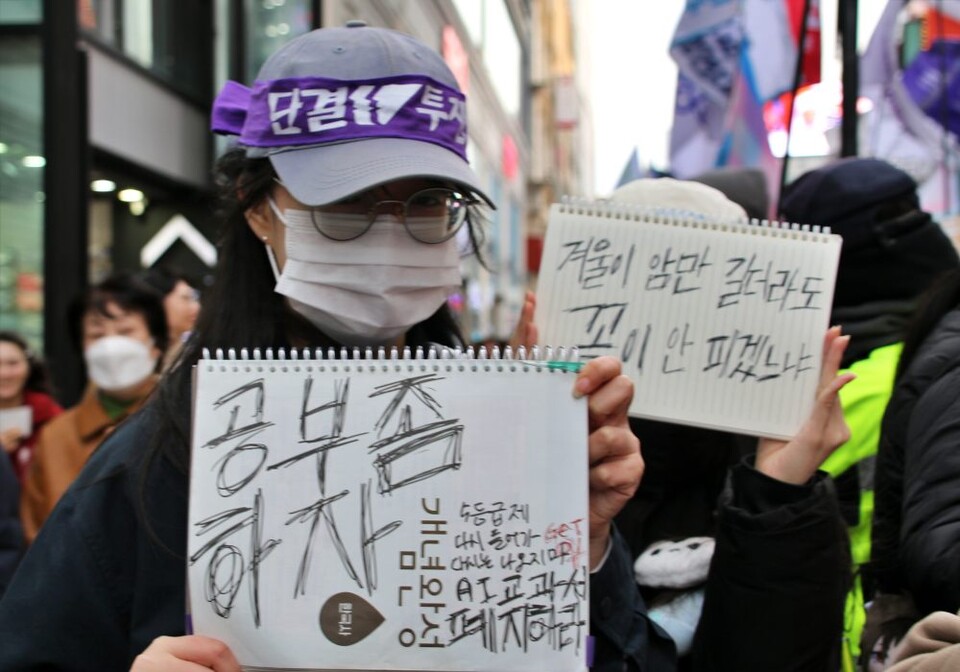 단결 투쟁
겨울이 암만 길더라도
꽃이 안 피겠느냐
공부좀
하자
개념완성
한국사
5등급제
다시 들어가
다시는 나오지마
GET
AI교과서
폐지하라